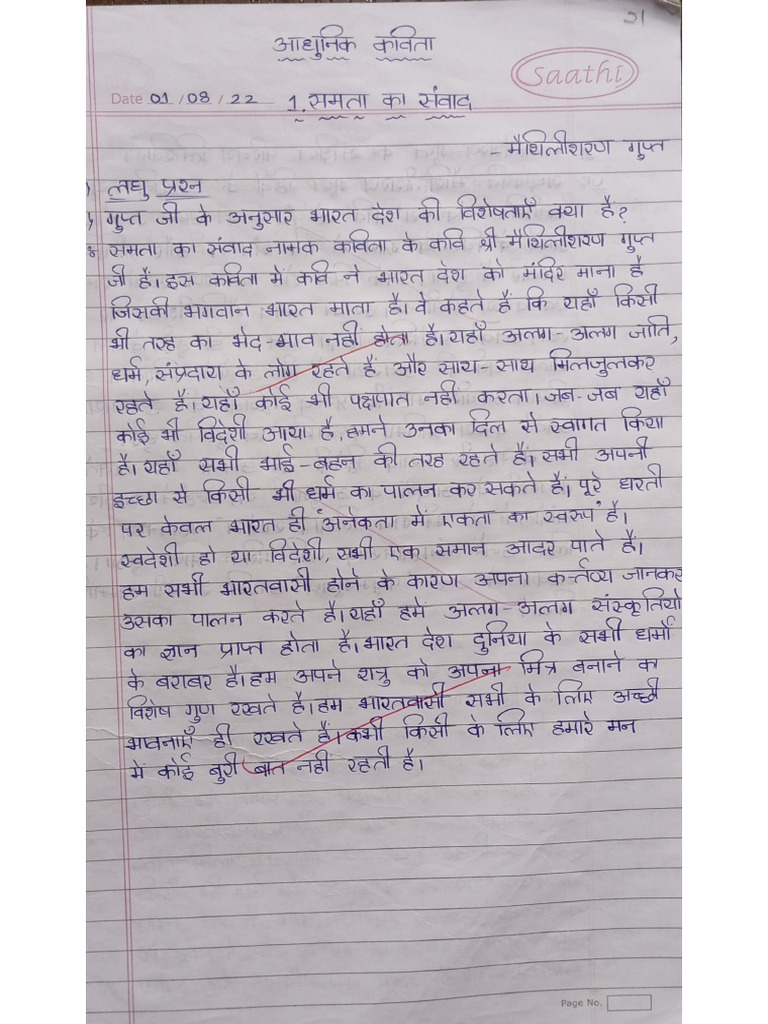 21
आधुनिक कविता
saathi
Date 01/08/22 1. समता का संवाद
- मैथिलीशरण गुप्त
) लघु प्रश्न
) गुप्त जी के अनुसार भारत देश की विशेषताएँ क्या है?
समता का संवाद नामक कविता के कवि श्री. मैथिलीशरण गुप्त
जी है। इस कविता में कवि ने भारत देश को मंदिर माना है
जिसकी भगवान भारत माता है। वे कहते हैं कि यहाँ किसी
भी तरह का भेद-भाव नहीं होता है। यहाँ अलग-अलग जाति,
धर्म, संप्रदाय के लोग रहते हैं और साथ-साथ मिलजुलकर
रहते है। यहाँ कोई भी पक्षपात नही करता। जब-जब यहाँ
कोई भी विदेशी आया है, हमने उनका दिल से स्वागत किया
है। यहाँ सभी भाई-बहन की तरह रहते हैं। सभी अपनी
इच्छा से किसी भी धर्म का पालन कर सकते है। पूरे धरती
पर केवल भारत ही "अनेकता में एकता का स्वरुप" है।
स्वदेशी हो या विदेशी, सभी एक समान आदर पाते हैं।
हम सभी भारतवासी होने के कारण अपना कर्त्तव्य जानकर
उसका पालन करते है। यहाँ हमें अलग-अलग संस्कृतियो
का ज्ञान प्राप्त होता है। भारत देश दुनिया के सभी धर्मो
के बराबर है। हम अपने शत्रु को अपना मित्र बनाने का
विशेष गुण रखते है। हम भारतवासी सभी के लिए अच्छी
भावनाएँ ही रखते हैं। कभी किसी के लिए हमारे मन
में कोई बुरी बात नहीं रहती है।
Page No.